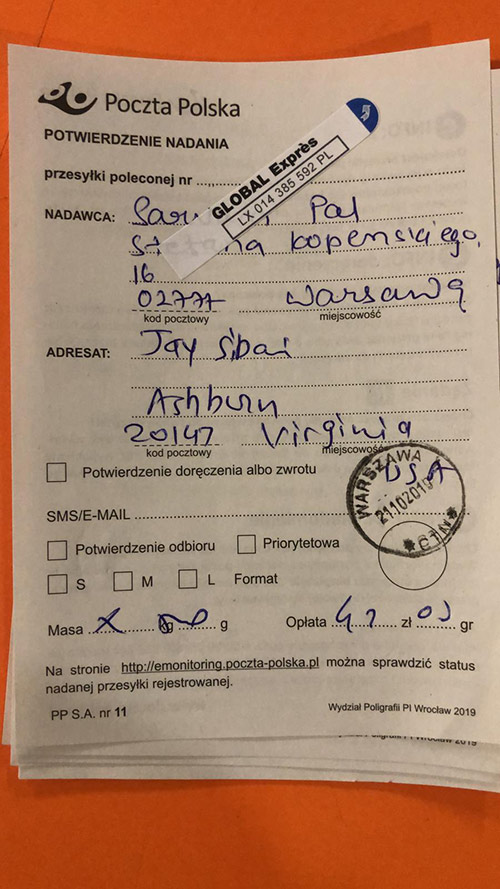 Poczta Polska
POTWIERDZENIE NADANIA
przesyłki poleconej nr
GLOBAL Exprès
LX 014 385 592 PL
NADAWCA: Pal
kopenskiego,
16
02777 Warsawa
kod pocztowy miejscowość
ADRESAT: Jay
Ashburn
20147 Virginia
kod pocztowy miejscowość
USA
Potwierdzenie doręczenia albo zwrotu
WARSZAWA
21102019
SMS/E-MAIL
Potwierdzenie odbioru Priorytetowa
S M L Format
Masa kg g Opłata zł gr
Na stronie http://emonitoring.poczta-polska.pl można sprawdzić status
nadanej przesyłki rejestrowanej.
PP S.A. nr 11 Wydział Poligrafii PI Wrocław 2019